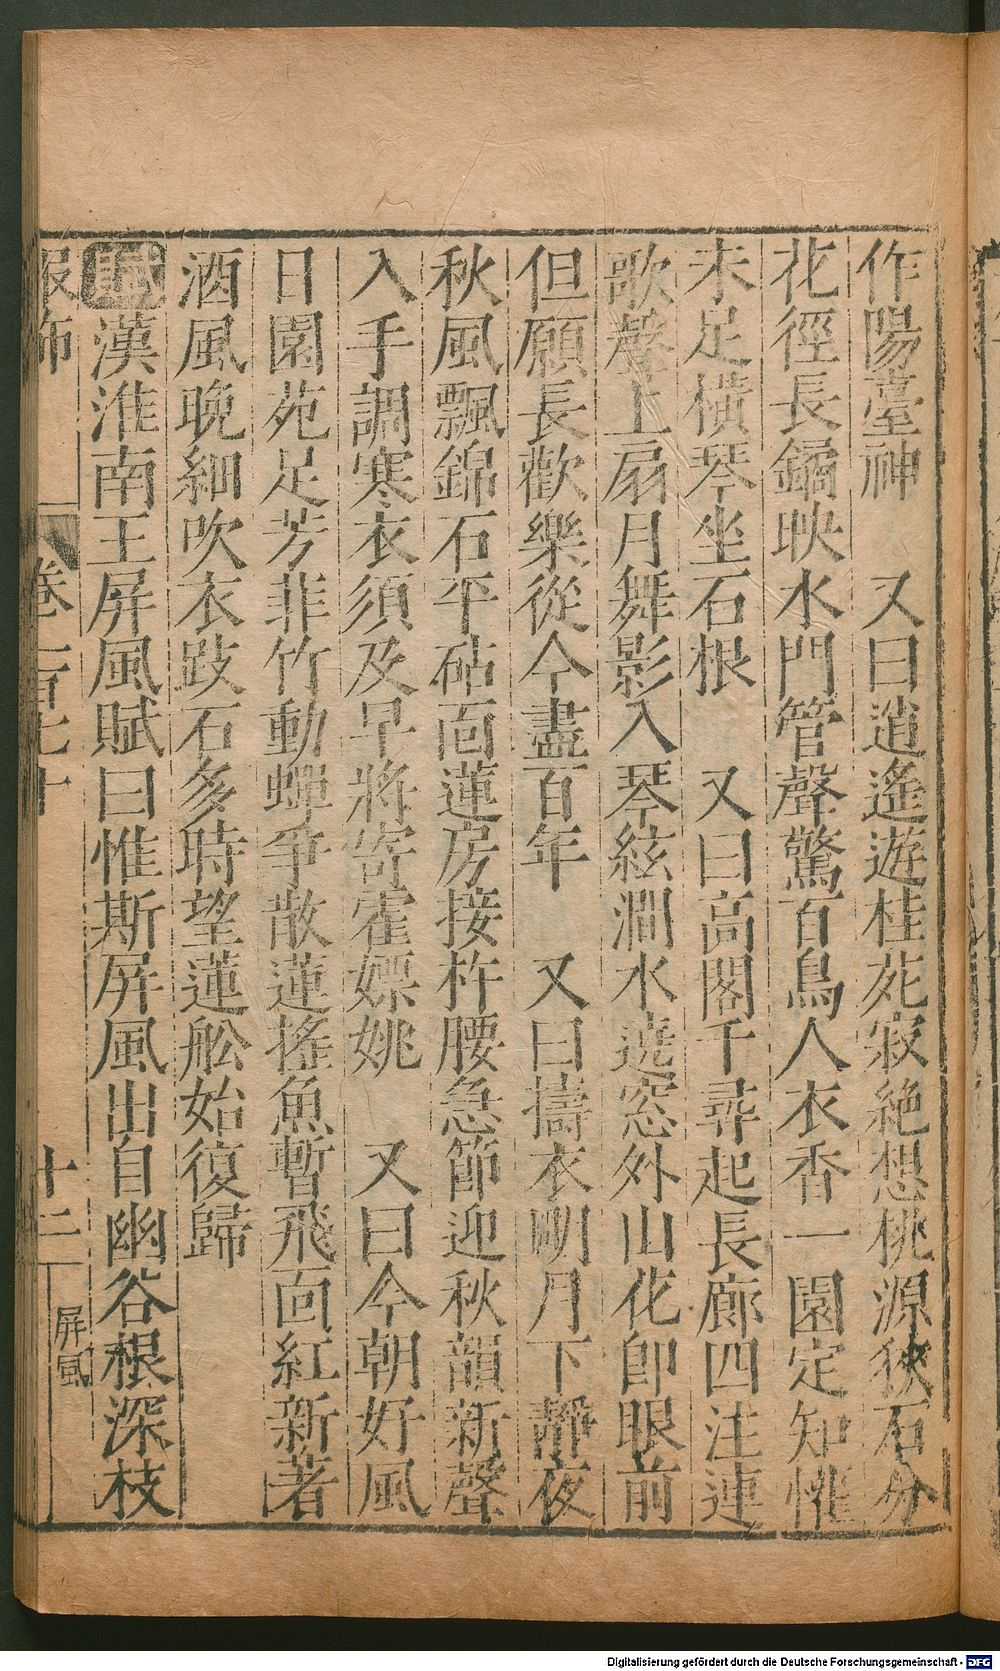 作陽臺神　又曰逍遙遊桂苑寂絶想桃源狹石分
花徑長鐍映水門管聲驚百鳥人衣香一園定知懽
未足橫琴坐石根　又曰高閣千尋起長廊四注連
歌聲上扇月舞影入琴絃澗水遶窓外山花卽眼前
但願長歡樂從今盡百年　又曰擣衣明月下靜夜
秋風飄錦石平砧面蓮房接杵腰急節迎秋韻新聲
入手調寒衣須及早將寄霍嫖姚　又曰今朝好風
日園苑足芳菲竹動蟬爭散蓮搖魚暫飛面紅新著
酒風晚細吹衣跂石多時望蓮舩始復歸
賦漢淮南王屏風賦曰惟斯屏風出自幽谷根深枝
服飾　卷一百七十　十二　屏風
Digitalisierung gefördert durch die Deutsche Forschungsgemeinschaft - DFG